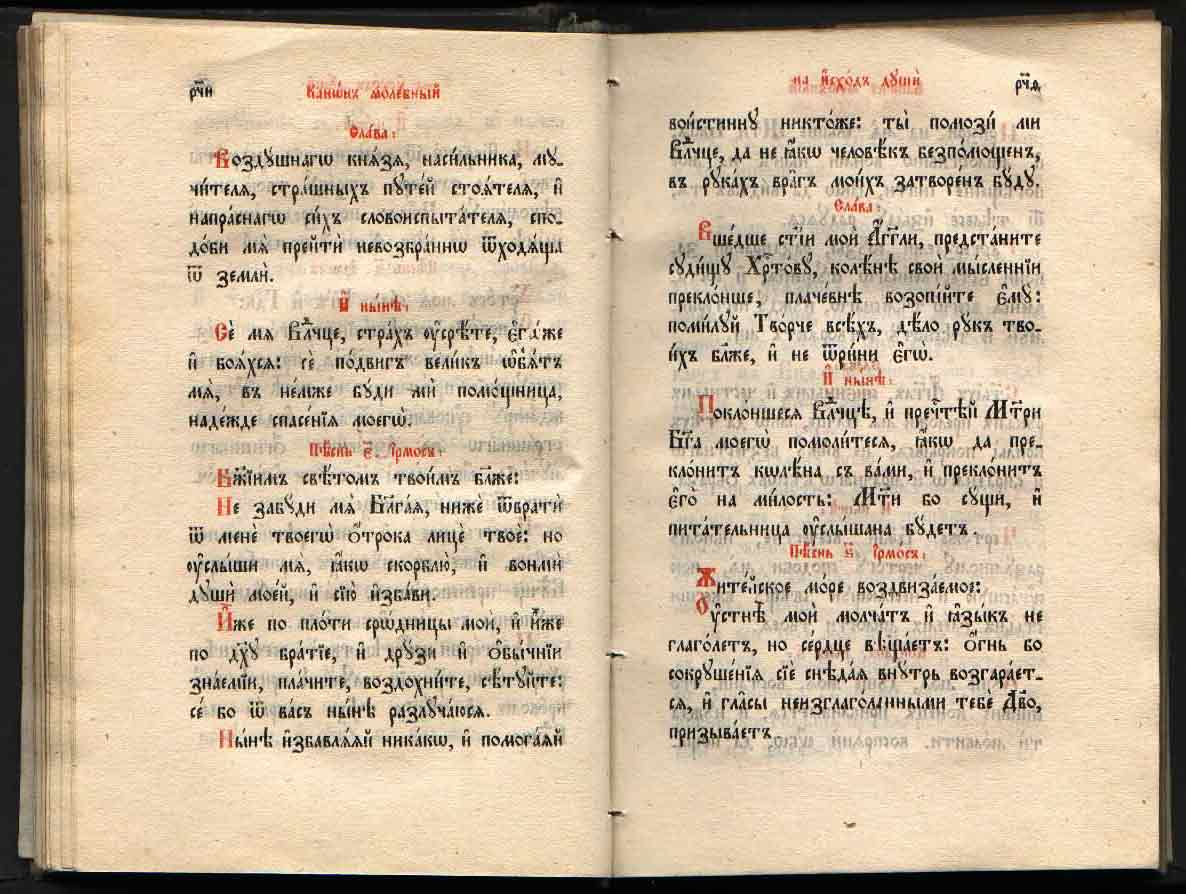 рч҃и
Канѡнъ молебный
Сла́ва:
Воздꙋ́шнагѡ кнѧ́зѧ, наси́льника, мꙋ-
чи́телѧ, стра́шныхъ пꙋте́й стоѧ́телѧ, и҆
напра́снагѡ си́хъ словоиспыта́телѧ, спо-
до́би мѧ̀ прейтѝ невозбра́ннѡ ѿходѧ́щы
ѿ землѝ.
И҆ ны́нѣ:
Сѐ мѧ̀ влⷣчце, стра́хъ ᲂу҆срѣ́те, є҆гѡ́же
и҆ боѧ́хсѧ: сѐ по́двигъ вели́къ ѡ҆б̾ѧ́тъ
мѧ̀, въ не́мже бꙋ́ди мѝ помо́щница,
наде́жде спасе́нїѧ моегѡ̀.
Пѣ́снь є҃. І҆рмо́съ:
Бж҃їимъ свѣ́томъ твои́мъ бл҃же:
Не забꙋ́ди мѧ̀ бл҃га́ѧ, нижѐ ѿвратѝ
ѿ менѐ твоегѡ̀ ѻ҆́трока лицѐ твоѐ: но
ᲂу҆слы́ши мѧ̀, ꙗ҆́кѡ скорблю̀, и҆ вонмѝ
дꙋшѝ мое́й, и҆ сїю̀ и҆зба́ви.
И҆̀же по пло́ти срѡ́дницы моѝ, и҆ и҆̀же
по дх҃ꙋ бра́тїе, и҆ дрꙋ́зи и҆ ѻ҆бы́чнїи
зна́емїи, пла́чите, воздохни́те, сѣ́тꙋйте:
се́ бо ѿ ва́съ ны́нѣ разлꙋча́юсѧ.
Ны́нѣ и҆збавлѧ́ѧй ника́кѡ, и҆ помога́ѧй
на и҆схо́дъ дꙋшѝ
рч҃ѳ
вои́стиннꙋ никто́же: ты̀ помозѝ ми
влⷣчце, да не ꙗ҆́кѡ человѣ́къ безпо́мощенъ,
въ рꙋка́хъ вра̑гъ мои́хъ затворе́нъ бꙋ́дꙋ.
Сла́ва:
Вше́дше ст҃і́и моѝ а҆́гг҃ли, предста́ните
сꙋди́щꙋ хрⷭ҇то́вꙋ, кѡлѣ́нѣ своѝ мы́сленнїи
прекло́нше, плаче́внѣ возопі́йте є҆мꙋ̀:
поми́лꙋй тво́рче всѣ́хъ, дѣ́ло рꙋ́къ тво-
и́хъ бл҃же, и҆ не ѿри́ни є҆гѡ̀.
И҆ ны́нѣ:
Поклони́шесѧ влⷣчце, и҆ пречⷭ҇тѣй мт҃ри
бг҃а моегѡ̀ помоли́тесѧ, ꙗ҆́кѡ да пре-
кло́нитъ кѡлѣ́на съ ва́ми, и҆ преклони́тъ
є҆го̀ на ми́лость: мт҃и бо сꙋ́щи, и҆
пита́тельница ᲂу҆слы́шана бꙋ́детъ.
Пѣ́снь ѕ҃. І҆рмо́съ:
Жите́йское мо́ре воздвиза́емое:
Оу҆стнѣ̀ моѝ молча́тъ и҆ ꙗ҆зы́къ не
глаго́летъ, но се́рдце вѣща́етъ: ѻ҆́гнь бо
сокрꙋше́нїѧ сїѐ снѣда́ѧ внꙋ́трь возгара́ет-
сѧ, и҆ гла́сы неизглаго́ланными тебѐ дв҃о,
призыва́етъ.